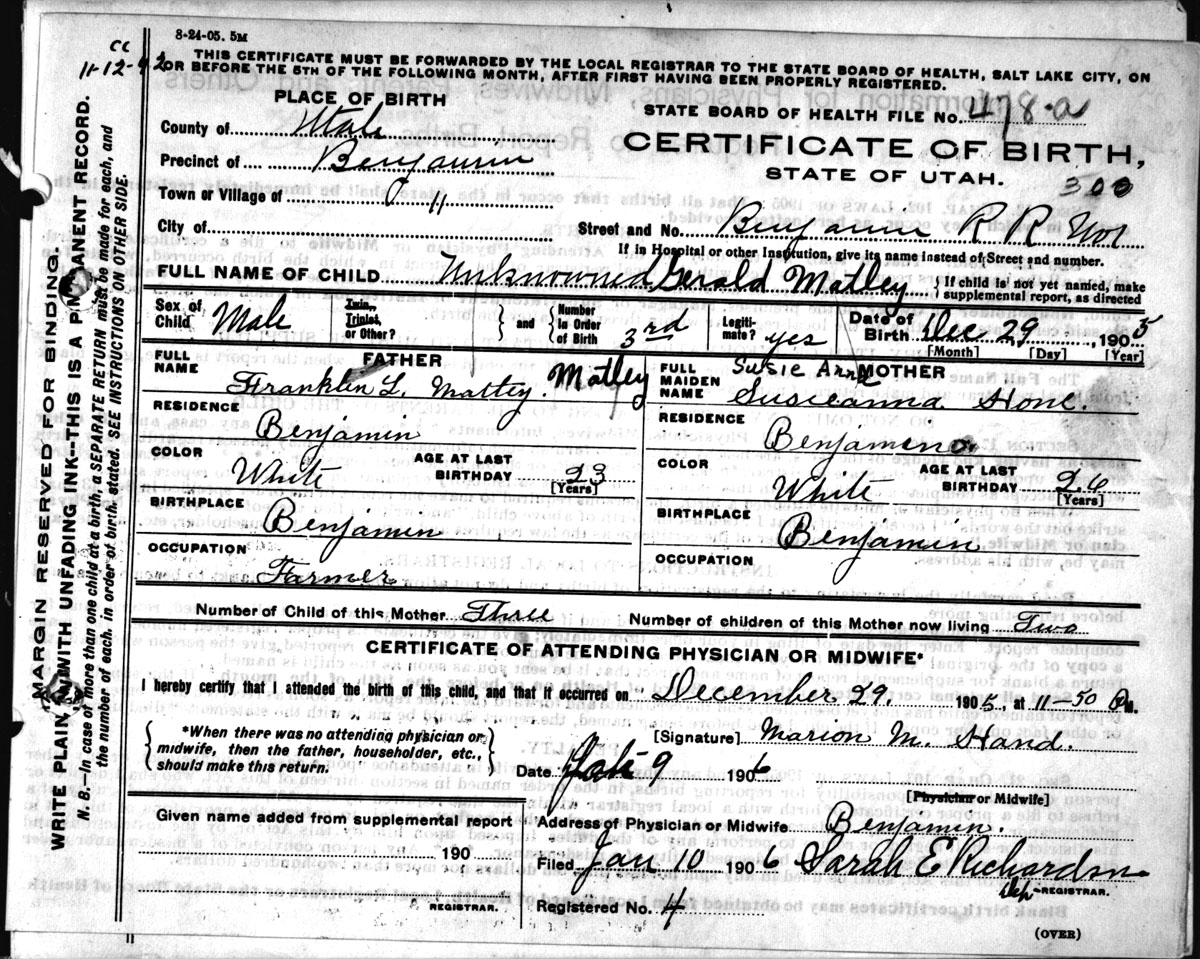 8-24-05. 5M
cc
11-12-42
THIS CERTIFICATE MUST BE FORWARDED BY THE LOCAL REGISTRAR TO THE STATE BOARD OF HEALTH, SALT LAKE CITY, ON
OR BEFORE THE 5TH OF THE FOLLOWING MONTH, AFTER FIRST HAVING BEEN PROPERLY REGISTERED.
PLACE OF BIRTH
STATE BOARD OF HEALTH FILE NO. 478-a
County of Utah
CERTIFICATE OF BIRTH,
Precinct of Benjamin
STATE OF UTAH.
300
Town or Village of "
City of
Street and No. Benjamin R R No1
If in Hospital or other Institution, give its name instead of Street and number.
FULL NAME OF CHILD Unknowned Gerald Matley { If child is not yet named, make supplemental report, as directed
Sex of Child Male Twin, Triplet, or Other? } and { Number in Order of Birth 3rd Legitimate? yes Date of Birth Dec 29, 1905
[Month] [Day] [Year]
FATHER
FULL NAME Franklin L. Mattey. Matley
RESIDENCE Benjamin
COLOR White AGE AT LAST BIRTHDAY 23
[Years]
BIRTHPLACE Benjamin
OCCUPATION Farmer
MOTHER
Susie Ann
FULL MAIDEN NAME Susieanna Hone.
RESIDENCE Benjamin
COLOR White AGE AT LAST BIRTHDAY 26
[Years]
BIRTHPLACE Benjamin
OCCUPATION
Number of Child of this Mother Three Number of children of this Mother now living Two
CERTIFICATE OF ATTENDING PHYSICIAN OR MIDWIFE*
I hereby certify that I attended the birth of this child, and that it occurred on December 29, 1905, at 11-50 P.M.
{ *When there was no attending physician or midwife, then the father, householder, etc., should make this return. }
[Signature] Marion M. Hand.
Date 9 1906
[Physician or Midwife]
Given name added from supplemental report
Address of Physician or Midwife Benjamin.
190
Filed Jan 10 1906 Sarah E Richardson
Dep REGISTRAR.
REGISTRAR.
Registered No. 4
(OVER)
MARGIN RESERVED FOR BINDING.
WRITE PLAINLY WITH UNFADING INK--THIS IS A PERMANENT RECORD.
N. B.--In case of more than one child at a birth, a SEPARATE RETURN must be made for each, and
the number of each, in order of birth, stated. SEE INSTRUCTIONS ON OTHER SIDE.